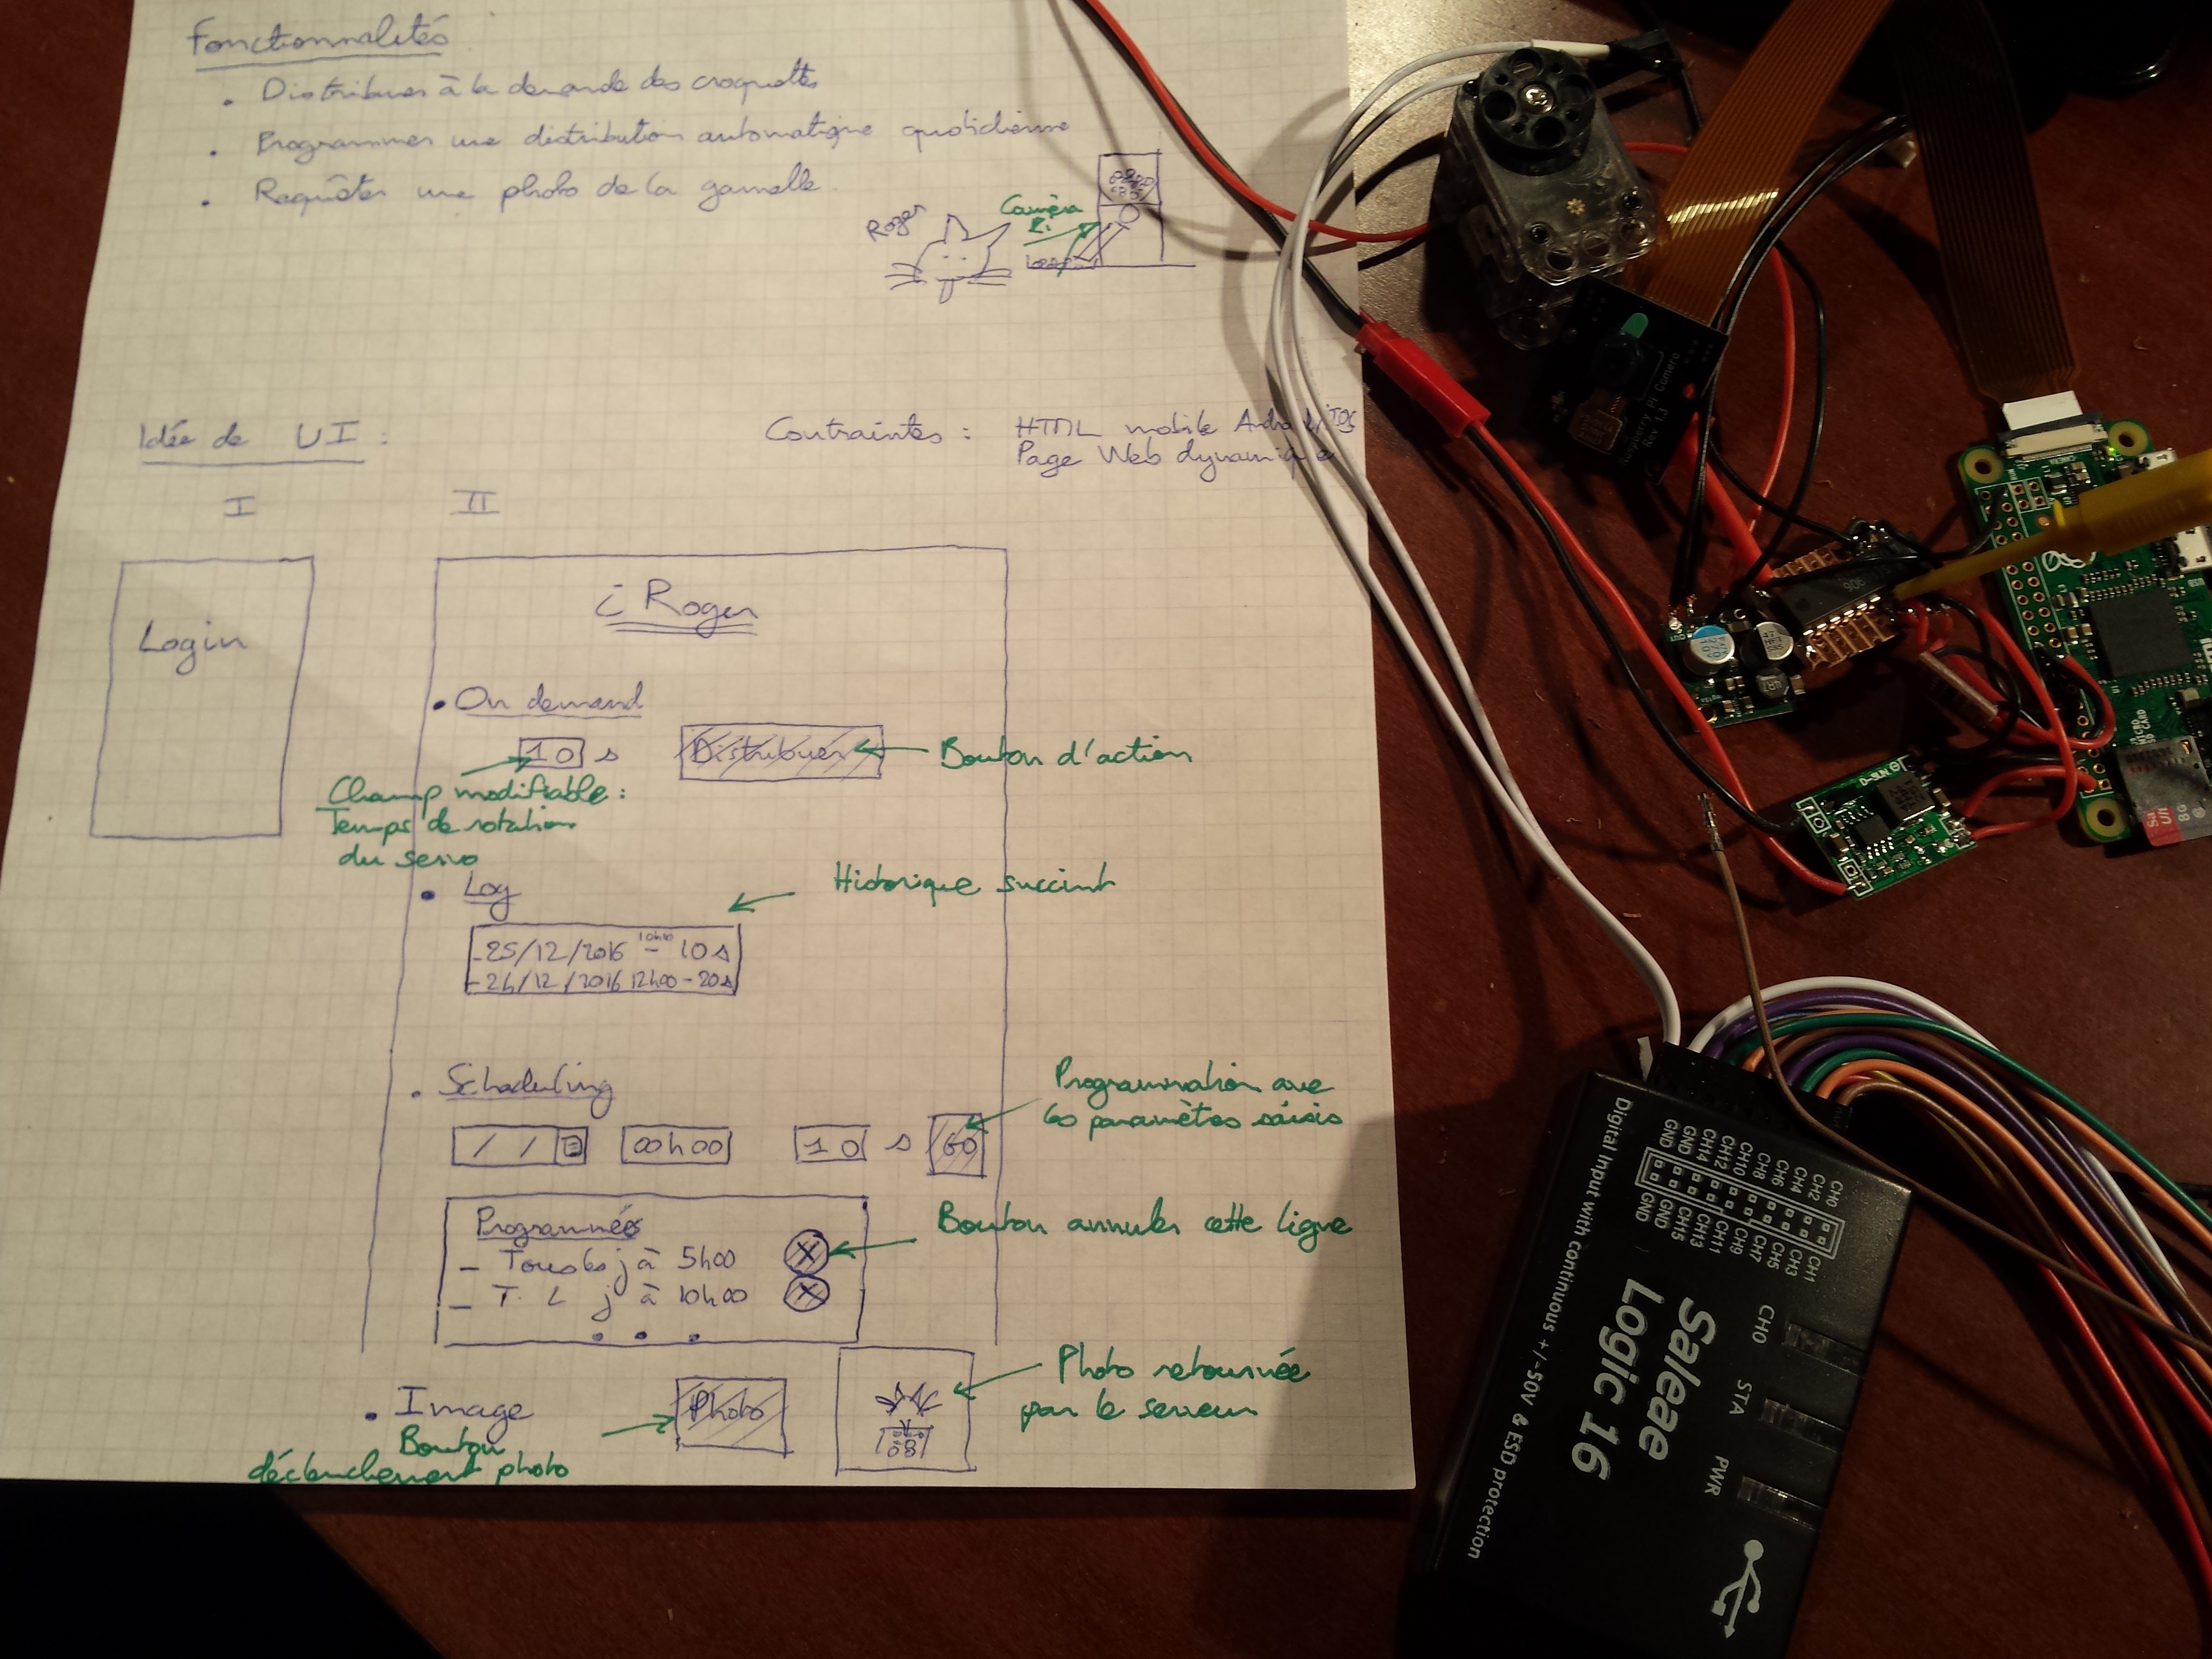 Fonctionnalités
. Distribuer à la demande des croquettes
. Programmer une distribution automatique quotidienne
. Requêter une photo de la gamelle.
Roger
Caméra
Pi
Idée de UI :
Contraintes : HTML mobile Android/iOS
Page Web dynamique
I
II
Login
i Roger
• On demand
10 s
Distribuer
Bouton d'action
Champ modifiable :
Temps de rotation
du servo
• Log
Historique succint
- 25/12/2016 10h10 - 10s
- 26/12/2016 12h00 - 20s
• Scheduling
Programmation avec
les paramètres saisis
/ /
00h00
10 s
GO
Programmés
- Tous les j à 5h00
X
- T. L j à 10h00
X
. . .
Bouton annuler cette ligne
• Image
Photo
Bouton
déclenchement photo
Photo retournée
par le serveur
Raspberry Pi Camera
Rev 1.3
D-SUN
Digital Input with continuous +/-50V & ESD protection
CH0
CH2
CH4
CH6
CH8
CH10
CH12
CH14
GND
GND
CH1
CH3
CH5
CH7
CH9
CH11
CH13
CH15
GND
GND
Saleae
Logic 16
CH0
STA
PWR